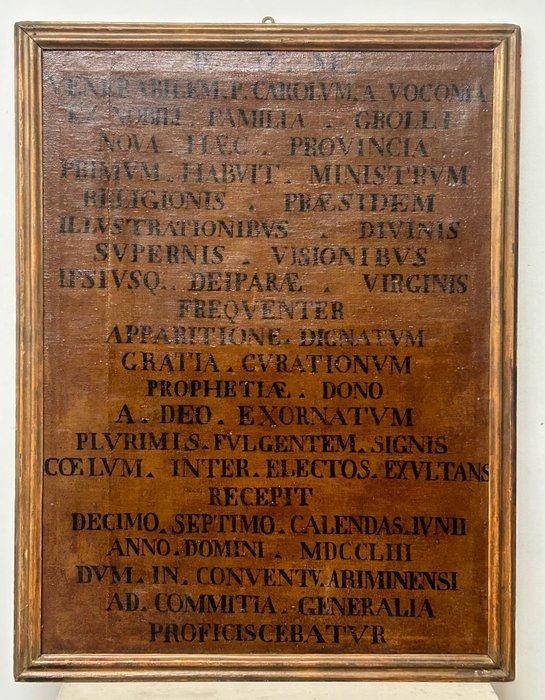 D. O. M.
VENERABILEM. P. CAROLVM. A VOCONIA
EX NOBILI. FAMILIA. GROLLI
NOVA HÆC. PROVINCIA
PRIMVM. HABVIT. MINISTRVM
RELIGIONIS. PRÆSIDEM
ILLVSTRATIONIBVS. DIVINIS
SVPERNIS. VISIONIBVS
IPSIVSQ. DEIPARÆ. VIRGINIS
FREQVENTER
APPARITIONE. DIGNATVM
GRATIA. CVRATIONVM
PROPHETIÆ. DONO
A. DEO. EXORNATVM
PLVRIMIS. FVLGENTEM. SIGNIS
CŒLVM. INTER. ELECTOS. EXVLTANS
RECEPIT
DECIMO. SEPTIMO. CALENDAS. IVNII
ANNO. DOMINI. MDCCLIII
DVM. IN. CONVENTV. ARIMINENSI
AD. COMMITIA. GENERALIA
PROFICISCEBATVR